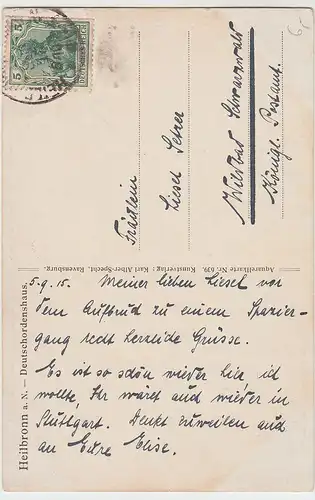 5
5
DEUTSCHES REICH
6,-
Fräulein
Liesel Setzer
Wildbad Schwarzwald
Königl. Postamt.
Aquarellkarte Nr. 639. Kunstverlag: Karl Alber-Specht, Ravensburg.
Heilbronn a. N. — Deutschordenshaus.
5.9.15. Meiner lieben Liesel vor
dem Aufbruch zu einem Spazier-
gang recht herzliche Grüsse.
Es ist so schön wieder hie, ich
wollte, Ihr wäret auch wieder in
Stuttgart. Denkt zuweilen auch
an Eure Elise.